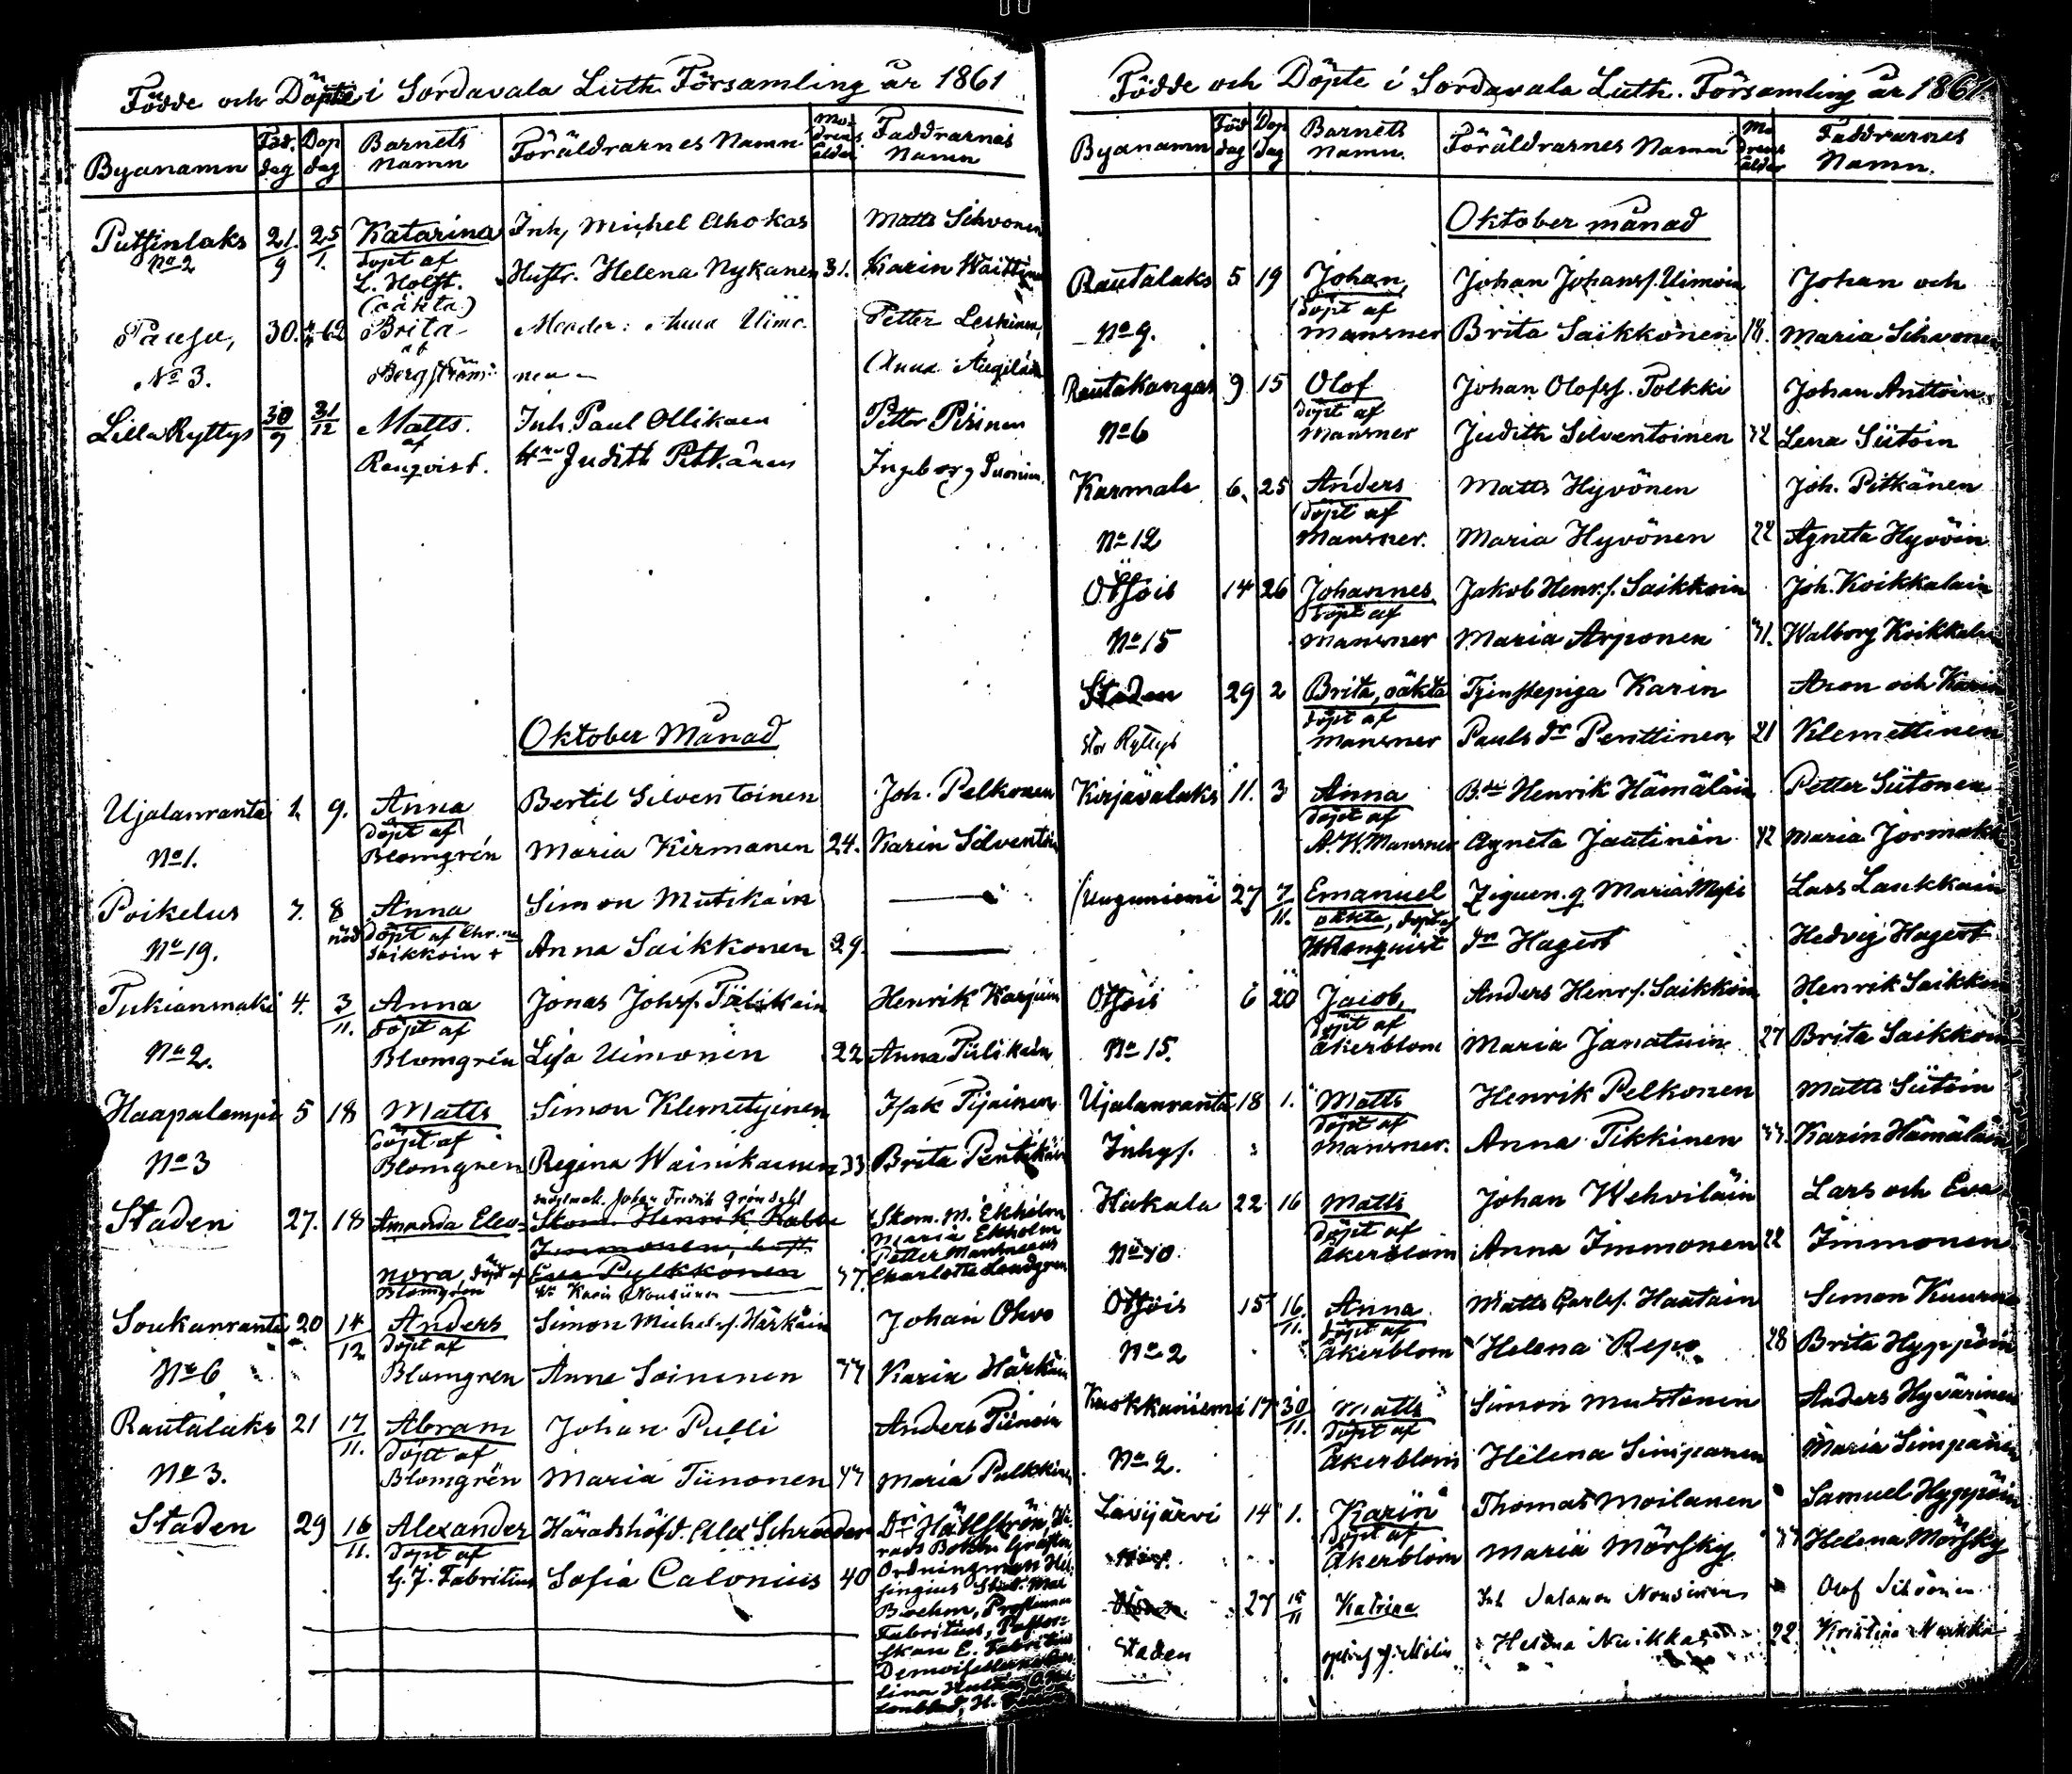 Födde och Döpte i Sordavala Luth. Församling år 1861
Byanamn Föd. dag Dop dag Barnets Namn Föräldrarnes Namn Modrens ålder Faddrarnes Namn
Putsinlaks 21. 25 Katarina Inh. Michel Ahokas Matts Sihvonen
No 2 9 1. döpt af
L. Holst. Hustr. Helena Nykänen 31. Karin Waittinen
(oäkta)
30. 62 Brita Moder: Anna Uimo- Petter Leskinen
No 3. af Bergström nen Anna
Lilla Ryttys 30/9 31/12 Matts. Inh. Paul Ollikaen Petter Piirinen
af
Renqvist. Judith Pitkänen Ingeborg
Oktober Månad
Ujalanranta 1. 9. Anna Bertil Silventoinen Joh. Pelkonen
No 1. döpt af
Blomgrén Maria Kirmanen 24. Karin Silventoin
Poikelus 7. 8 Anna Simon Mutikain
No 19. nöd döpt af Chr.na
Saikkoin + Anna Saikkonen 29.
Tukianmäki 4. 3/11. Anna Jonas Johsf. Pülikain Henrik Karjuin
No 2. döpt af
Blomgrén Lisa Uimonen 22 Anna Pülikain
Haapalampi 5 18 Matts Simon Klemetjinen Isak Pijainen
No 3 döpt af
Blomgren Regina Wainikainen 33 Brita Pentikäin
Johan Fredrik Gröndahl
Staden 27. 18 Amanda Eleo- Skom. Henrik Skom. M. Ekholm
Maria Ekholm
Immonen, hust. Petter
nora, döpt af Eva Pylkkonen 37. Charlotte Lendgren
Blomgrén Karin Nousiinen
Soukanranta 20 14/12 Anders Simon Michelsf. Härkäin Johan Ohvo
No 6 döpt af
Blomgren Anna Soininen 44 Karin Härkäin
Rautalaks 21 17/11. Abram Johan Pulli Anders Tiinoin
No 3. döpt af
Blomgrén Maria Tiinonen 44 Maria Pulkkinen
Staden 29 16/11. Alexander Häradshöfd. Alex Schroeder Dr Hällström,
döpt af
G. J. Fabritius Sofia Calonius 40 Ordningsman
Boehm,
Fabritius, Pastor-
skan E. Fabritius
Födde och Döpte i Sordavala Luth. Församling år 1861
Byanamn Föd dag Dop dag Barnets namn. Föräldrarnes Namn Modrens ålder Faddrarnes Namn.
Oktober månad
Rautalaks 5 19 Johan Johan Johansf. Uimoin Johan och
No 9. döpt af
Mansner Brita Saikkonen 18. Maria Sihvonen
Rautakangas 9 15 Olof Johan Olofsf. Polkki Johan Anttoin
No 6 döpt af
Mansner Judith Silventoinen 32 Lena Siitoin
Karmala 6. 25 Anders Matts Hyvönen Joh. Pitkänen
No 12 döpt af
Mansner. Maria Hyvönen 22 Agneta Hyvöin
Otsois 14 26 Johannes Jakob Henr.f. Saikkoin Joh. Koikkalain
No 15 döpt af
Mansner Maria Arponen 31. Walborg Koikkalain
Staden 29 2 Brita, oäkta Tjenstepiga Karin Aron och Karin
Stor Ryttys döpt af
Mansner Pauls dr Penttinen 21 Klemettinen
Kirjävälaks 11. 3 Anna B.de Henrik Hämäläin Petter Siitonen
döpt af
A. W. Mansner Agneta Jaatinen 42 Maria Jormakk
Uuguniemi 27 7/11. Emanuel Ziguen. q. Maria Mgis Lars Laukkain
oäkta, döpt af
dr Hagert Hedvig Hagert
Otsois 6 20 Jacob, Anders Henrf. Saikkoin Henrik Saikkon
No 15. döpt af
Åkerblom Maria Janatuin 27 Brita Saikkon
Ujalanranta 18 1. Matts Henrik Pelkonen Matts Siitoin
Inhys. döpt af
Mansner. Anna Tikkinen 33. Karin Hämäläin
Hakala 22 16 Matts Johan Wehviläin Lars och Eva
No 10 döpt af
Åkerblom Anna Immonen 22 Immonen
Otsois 15 16/11. Anna Matts Carlsf. Haatain Simon Kuurma
No 2 döpt af
Åkerblom Helena Repo 28 Brita Hyppöin
Kuokkaniemi 17 30/11. Matts Simon Mustonen Anders Hyvärinen
No 2. döpt af
Åkerblom Helena Simpanen Maria Simpanen
Lavijärvi 14 1. Karin Thomas Moilanen Samuel Hyppöin
döpt af
Åkerblom Maria Mörsky 37 Helena Mörsky
27 15/11 Katrina Inh. Salamon Nousiinen Olof Sihvonen
Staden Helena Nuikkas 22. Kristina